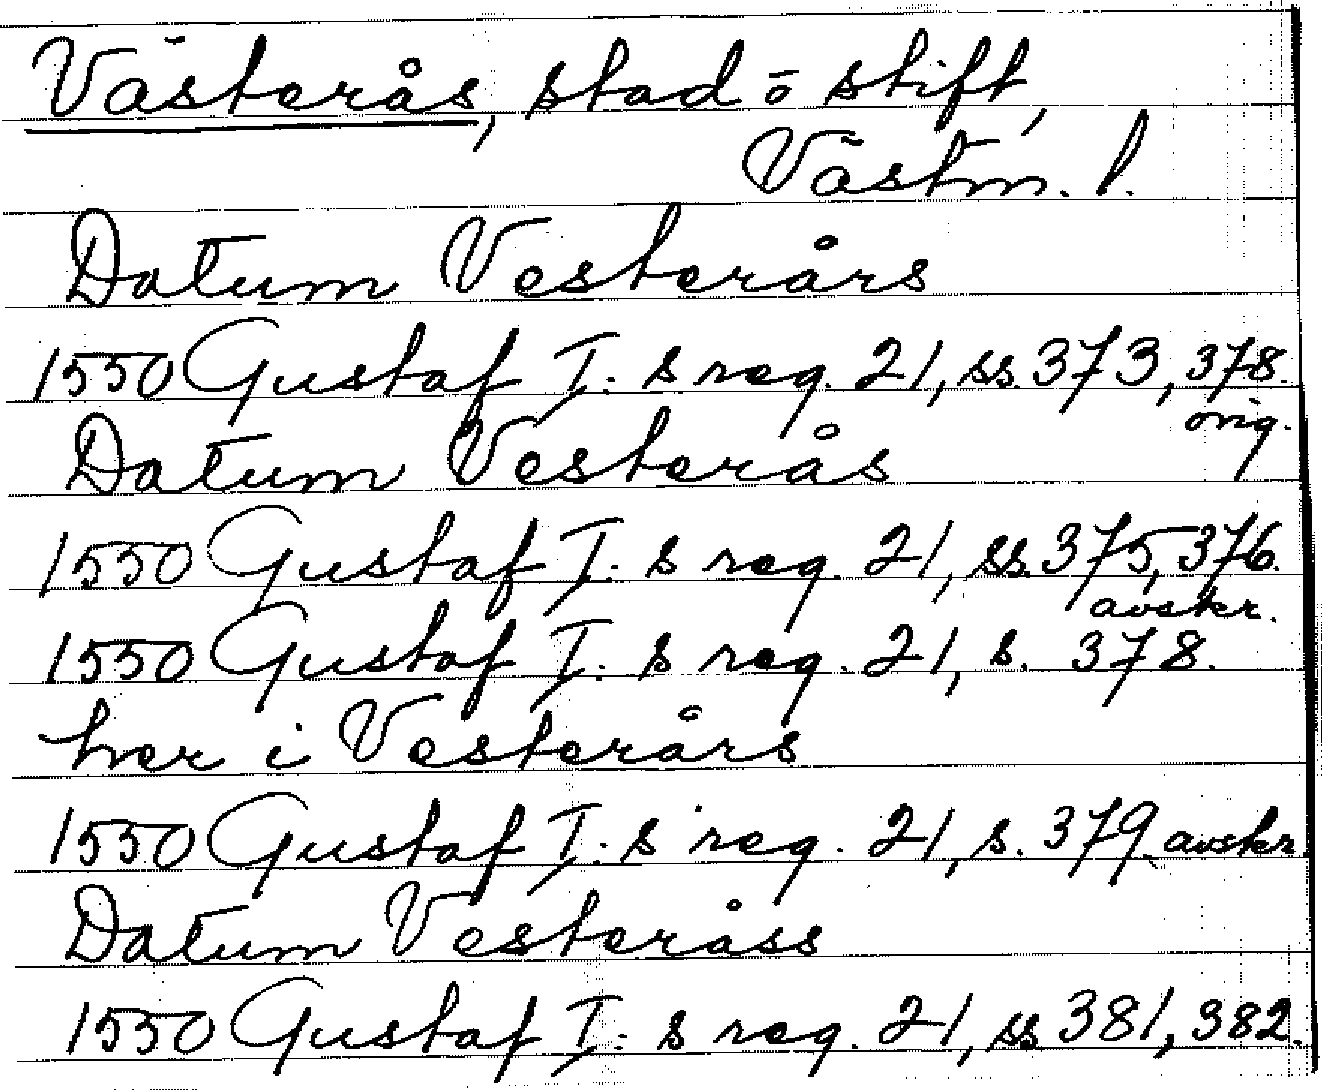 Västerås, stad o stift,
Västm. l.
Datum Vesterårs
1550 Gustaf I:s reg. 21, ss. 373, 378.
orig.
Datum Vesterås
1550 Gustaf I:s reg. 21, ss. 375, 376.
avskr.
1550 Gustaf I:s reg. 21, s. 378.
her i Vesterårs
1550 Gustaf I:s reg. 21, s. 379. avskr.
Datum Vesteråss
1550 Gustaf I:s reg. 21, ss. 381, 382.